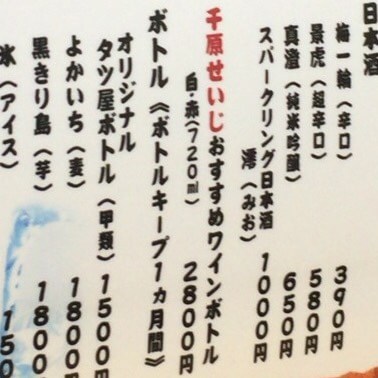 日本酒
梅一輪(辛口) 390円
景虎(超辛口) 580円
真澄(純米吟醸) 650円
スパークリング日本酒
澪(みお) 1000円
千原せいじおすすめワインボトル
白・赤(720ml) 2800円
ボトル《ボトルキープ1ヵ月間》
オリジナル
タツ屋ボトル(甲類) 1500円
よかいち(麦) 1800円
黒きり島(芋) 1800
氷(アイス) 150